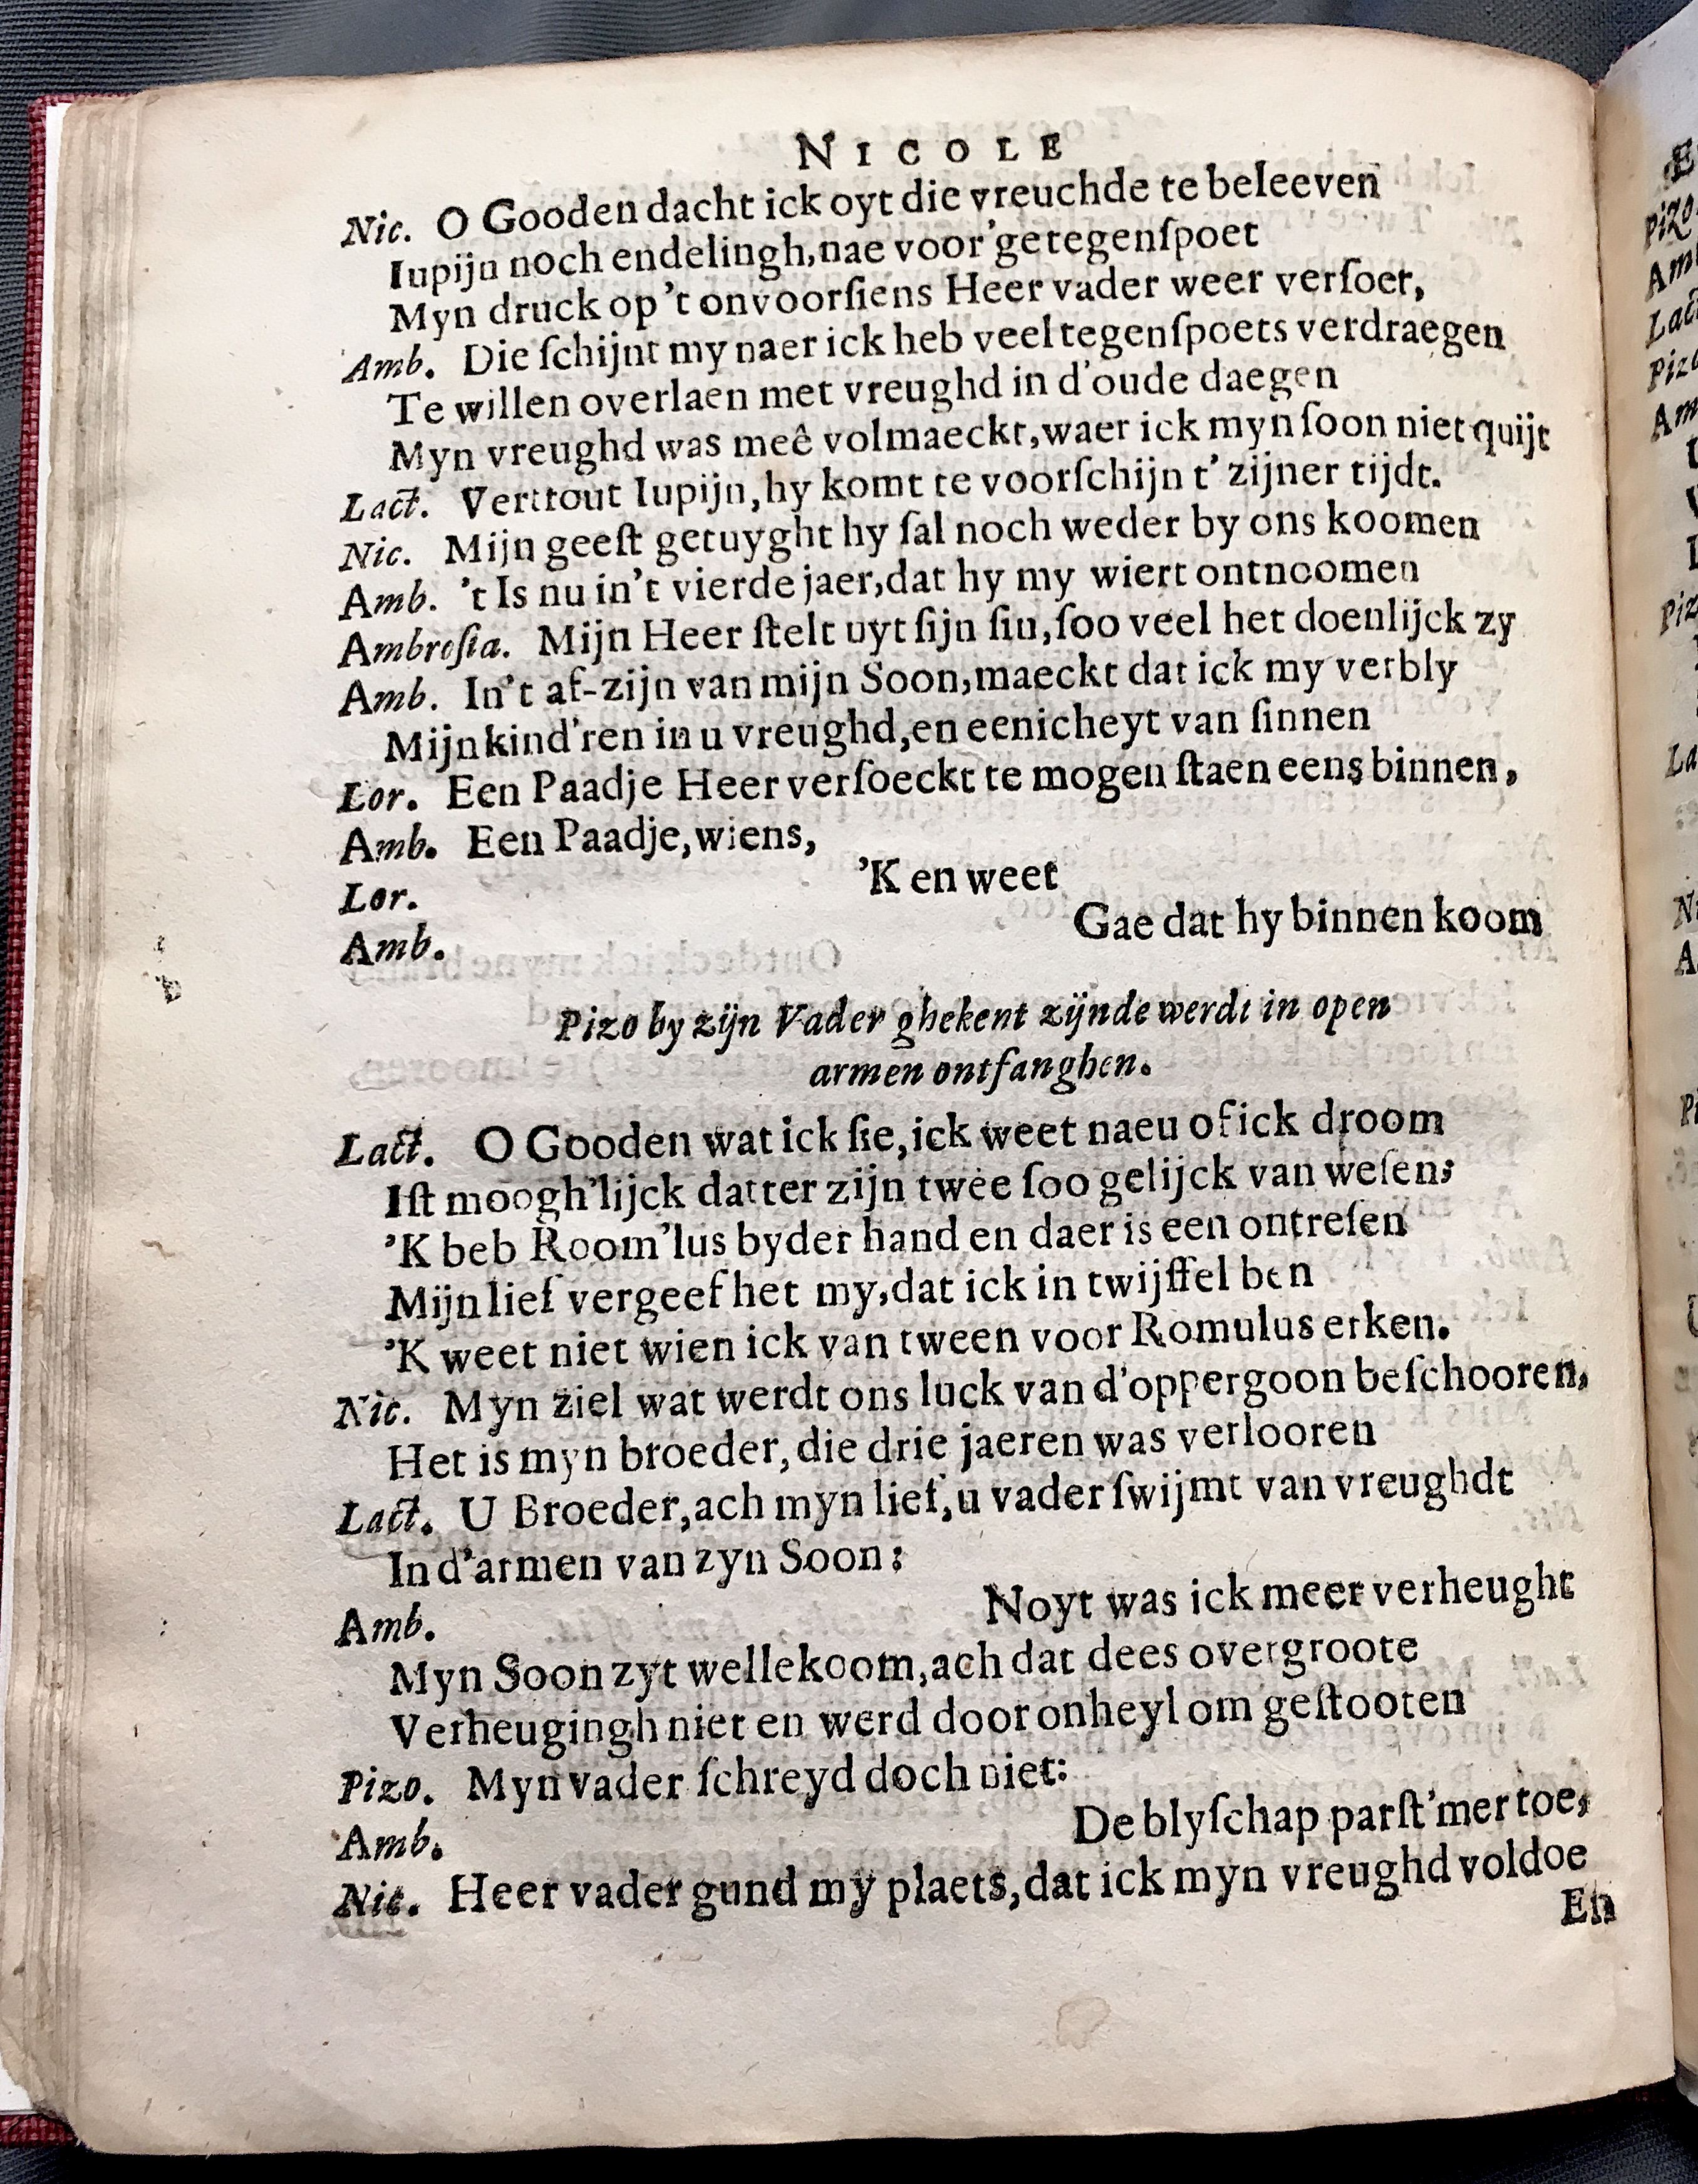 NICOLE
Nic. O Gooden dacht ick oyt die vreuchde te beleeven
Iupijn noch endelingh, nae voor'ge tegenſpoet
Myn druck op 't onvoorſiens Heer vader weer verſoet,
Amb. Die ſchijnt my naer ick heb veel tegenſpoets verdraegen
Te willen overlaen met vreughd in d'oude daegen
Myn vreughd was meê volmaeckt, waer ick myn ſoon niet quijt
Lact. Vertrout Iupijn, hy komt te voorſchijn t' zijner tijdt.
Nic. Mijn geeſt getuyght hy ſal noch weder by ons koomen
Amb. 't Is nu in't vierde jaer, dat hy my wiert ontnoomen
Ambroſia. Mijn Heer ſtelt uyt ſijn ſin, ſoo veel het doenlijck zy
Amb. In't af-zijn van mijn Soon, maeckt dat ick my verbly
Mijn kind'ren in u vreughd, en eenicheyt van ſinnen
Lor. Een Paadje Heer verſoeckt te mogen ſtaen eens binnen,
Amb. Een Paadje, wiens,
Lor. 'K en weet
Amb. Gae dat hy binnen koom
Pizo by zijn Vader ghekent zijnde werdt in open
armen ontfanghen.
Lact. O Gooden wat ick ſie, ick weet naeu of ick droom
Iſt moogh'lijck datter zijn twee ſoo gelijck van weſen;
'K beb Room'lus by der hand en daer is een ontreſen
Mijn lief vergeef het my, dat ick in twijffel ben
'K weet niet wien ick van tween voor Romulus erken.
Nic. Myn ziel wat werdt ons luck van d'oppergoon beſchooren,
Het is myn broeder, die drie jaeren was verlooren
Lact. U Broeder, ach myn lief, u vader ſwijmt van vreughdt
In d'armen van zyn Soon:
Amb. Noyt was ick meer verheught
Myn Soon zyt wellekoom, ach dat dees overgroote
Verheugingh niet en werd door onheyl om geſtooten
Pizo. Myn vader ſchreyd doch niet:
Amb. De blyſchap parſt'mer toe,
Nic. Heer vader gund my plaets, dat ick myn vreughd voldoe
En